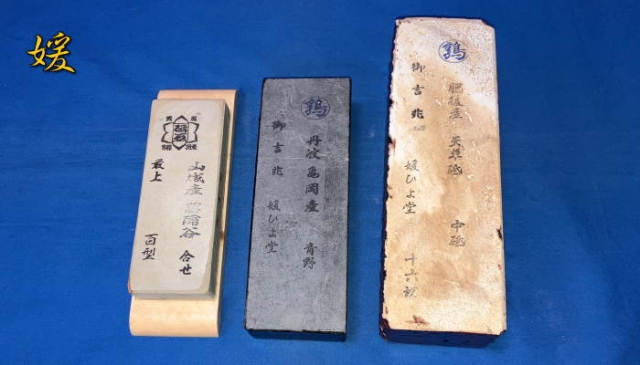 媛
最上
山城産
合せ
百型
鶉
御吉兆
丹波亀岡産 青野
媛ひよ堂
鶉
御吉兆
肥後産 天草砥 中砥
媛ひよ堂